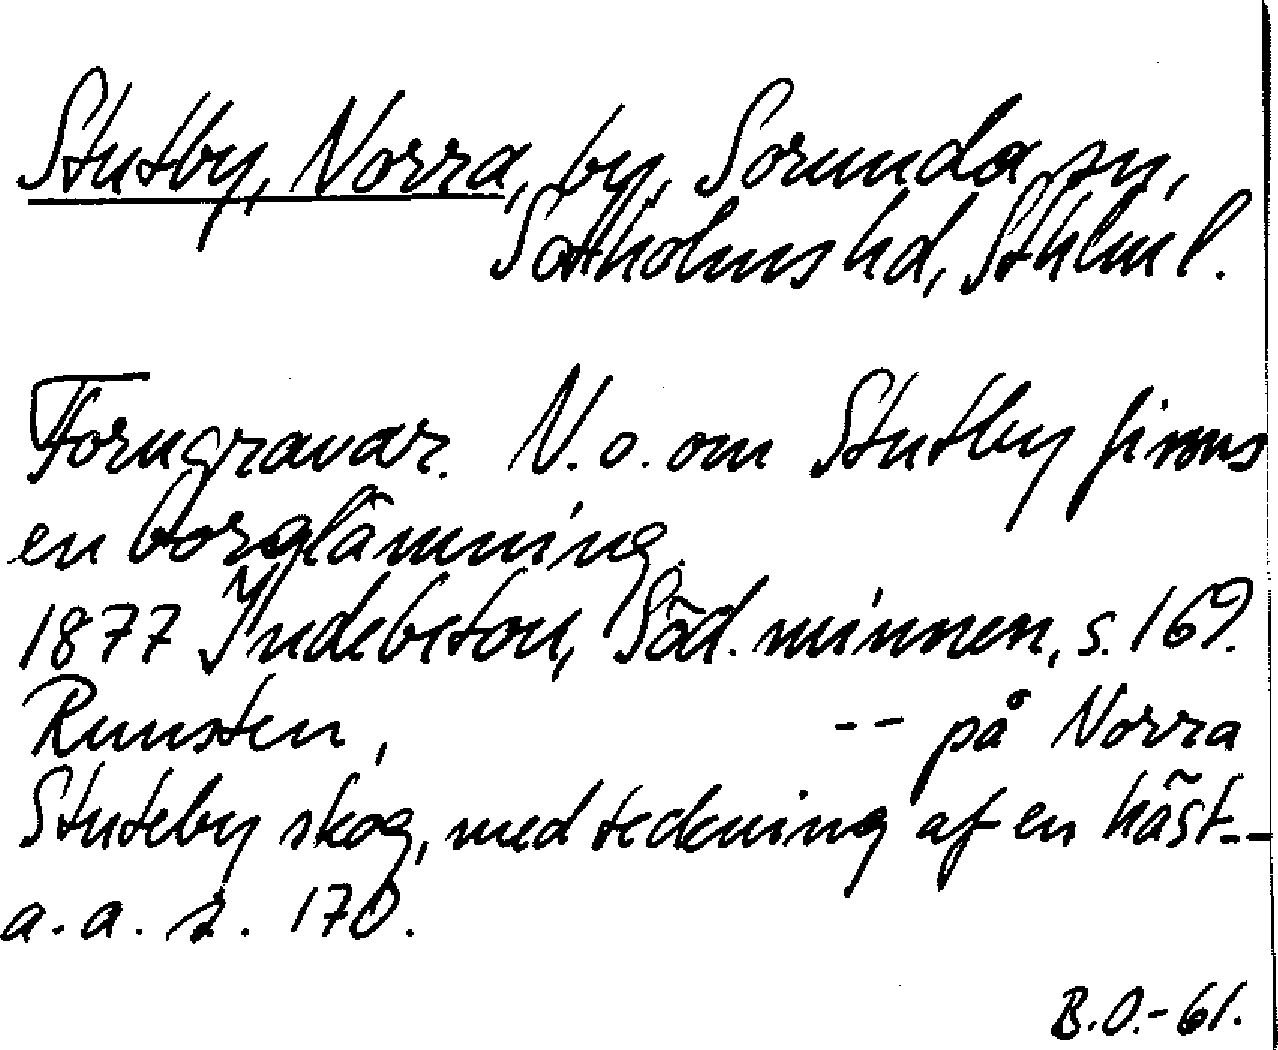 Stutby, Norra, by, Sorunda sn,
Sotholms hd, Sthlm l.
Forngravar. N.o. om Stutby finns
en borglämning.
1877 Indebetou, Söd. minnen, s. 169.
Runsten, -- på Norra
Stuteby skog, med teckning af en häst--
a. a. s. 170.
B.O.-61.